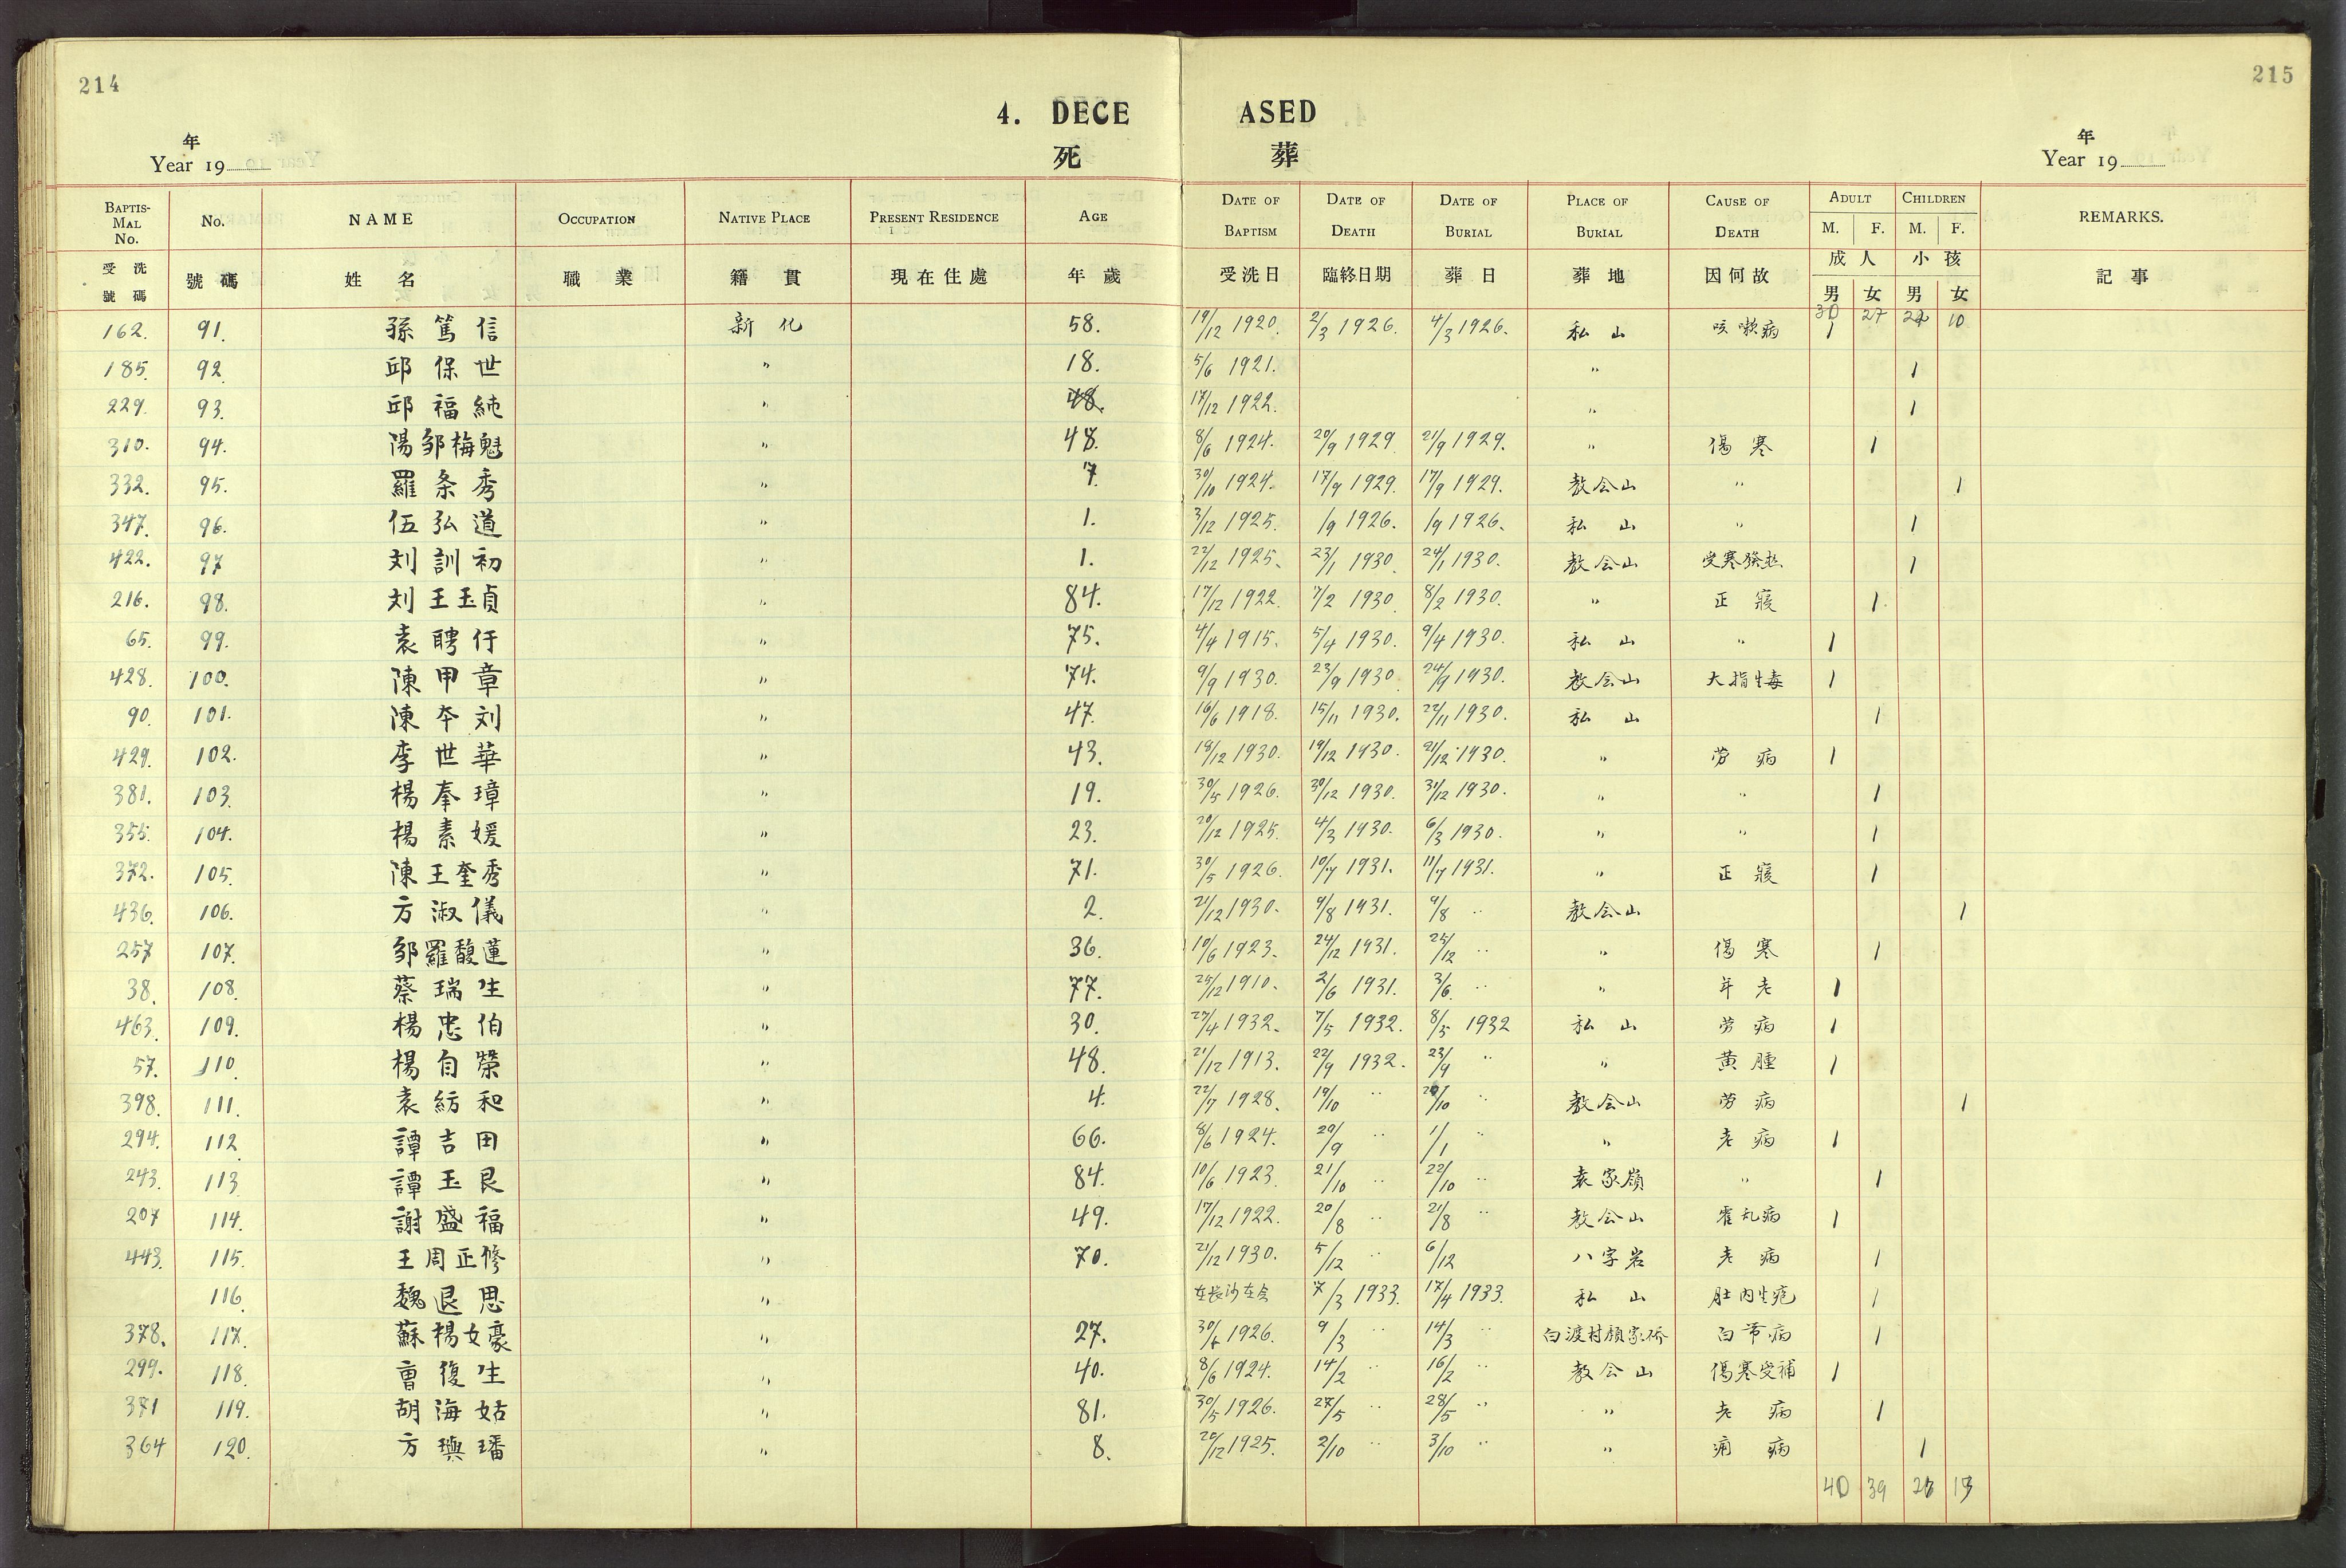 214
215
4. DECE ASED
死 葬
年
Year 19
年
Year 19
BAPTISMAL No. No. NAME OCCUPATION NATIVE PLACE PRESENT RESIDENCE AGE DATE OF BAPTISM DATE OF DEATH DATE OF BURIAL PLACE OF BURIAL CAUSE OF DEATH ADULT M. F. CHILDREN M. F. REMARKS.
受洗號碼 號碼 姓名 職業 籍貫 現在住處 年歲 受洗日 臨終日期 葬日 葬地 因何故 成人 男 女 小孩 男 女 記事
30 27 10
162. 91. 孫篤信 新化 58. 19/12 1920. 2/3 1926. 4/3 1926. 私山 咳嗽病 1
185. 92. 邱保世 〃 18. 5/6 1921. 〃 1
229. 93. 邱福純 〃 48. 17/12 1922. 〃 1
310. 94. 陽邹梅魁 〃 48. 8/6 1924. 20/9 1929 21/9 1929. 〃 傷寒 1
332. 95. 羅条秀 〃 7. 30/10 1924. 17/9 1929. 17/9 1929. 教会山 〃 1
347. 96. 伍弘道 〃 1. 3/12 1925. /9 1926. /9 1926. 私山 〃 1
422. 97 刘訓初 〃 1. 22/12 1925. 23/1 1930 24/1 1930. 教会山 受寒發热 1
216. 98. 刘王玉貞 〃 84. 17/12 1922. 7/2 1930 8/2 1930. 〃 正寢 1
65. 99. 袁聘仔 〃 75. 4/4 1915. 5/4 1930. 9/4 1930. 私山 〃 1
428. 100. 陳甲章 〃 74. 9/9 1930. 23/9 1930 24/9 1930. 教会山 大指生毒 1
90. 101. 陳夲刘 〃 47. 16/6 1918. 15/11 1930. 22/11 1930. 私山 1
429. 102. 李世華 〃 43. 18/12 1930. 19/12 1930. 21/12 1930. 〃 劳病 1
381. 103. 楊奉璋 〃 19. 30/5 1926. 30/12 1930. 31/12 1930. 〃 〃 1
355. 104. 楊素媛 〃 23. 20/12 1925. 4/3 1930. 6/3 1930. 〃 〃 1
372. 105. 陳王奎秀 〃 71. 30/5 1926. 10/7 1931. 11/7 1931. 〃 正寢 1
436. 106. 方淑儀 〃 2. 21/12 1930. 9/8 1931. 9/8 〃 教会山 1
257 107. 邹羅馥蓮 〃 36. 10/6 1923. 24/12 1931. 25/12 〃 〃 傷寒 1
38. 108. 蔡瑞生 〃 77. 25/12 1910. 2/6 1931. 3/6. 〃 〃 年老 1
463. 109. 楊忠伯 〃 30. 27/4 1932. 7/5 1932. 8/5 1932 私山 劳病 1
57. 110. 楊自榮 〃 48. 21/12 1913. 22/9 1932. 23/9 〃 〃 黄腫 1
398. 111. 袁紡和 〃 4. 22/7 1928. 19/10 〃 20/10 〃 教会山 劳病 1
294. 112. 譚吉田 〃 66. 8/6 1924. 29/9 〃 1/1 〃 〃 老病 1
243. 113. 譚玉艮 〃 84. 10/6 1923 21/10 〃 22/10 〃 袁家嶺 〃 1
207 114. 謝盛福 〃 49. 17/12 1922. 20/8 〃 21/8 〃 教会山 霍乱病 1
443. 115. 王周正修 〃 70. 21/12 1930. 5/12 〃 6/12 八字岩 老病 1
116. 魏退思 〃 在長沙在会 7/3 1933. 17/4 1933. 私山 肚内生疮 1
378. 117. 蘇楊女豪 〃 27. 30/5 1926. 9/3 〃 14/3 〃 白渡村顏家桥 白带病 1
299. 118. 曹復生 〃 40. 8/6 1924. 14/2 〃 16/2 〃 教会山 傷寒受補 1
371 119. 胡海姑 〃 81. 30/5 1926. 27/5 〃 28/5 〃 〃 老病 1
364 120. 方璵璠 〃 8. 20/12 1925. 2/10 〃 3/10 〃 〃 病 1
40 39 13